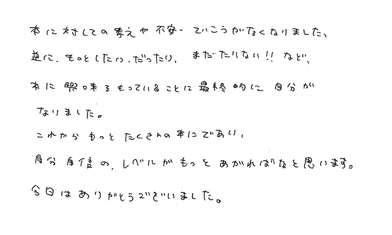 本に対しての考えや不安、ていこうがなくなりました、
逆に、もっとしたい、だったり、まだたりない!!など、
本に興味をもっていることに最終的に自分が
なりました。
これからもっとたくさんの本にであい、
自分自信の、レベルがもっとあがればなと思います。
今日はありがとうございました。